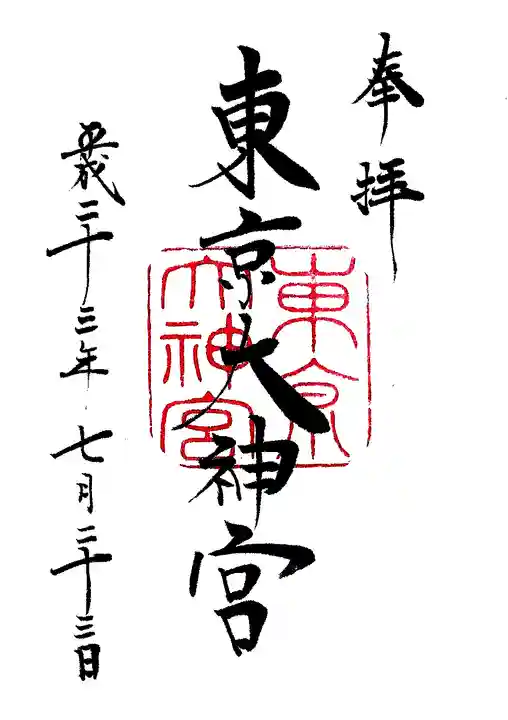 奉拝
東京大神宮
東京
大神宮
平成二十三年七月二十三日